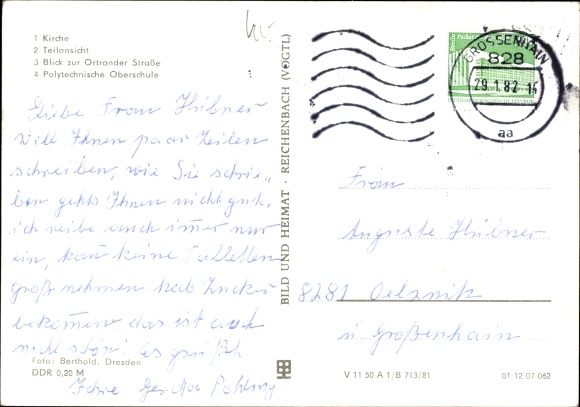 1 Kirche
2 Teilansicht
3 Blick zur Ortrander Straße
4 Polytechnische Oberschule
Liebe Frau Hübner
will Ihnen paar Zeilen
schreiben, wie Sie schrie-
ben gehts Ihnen nicht gut.
ich reibe auch immer nur
ein, kan keine Tabletten
groß nehmen hab Zucker
bekommen das ist auch
nicht schön. Es grüßt
Ihre Gerda
Foto: Berthold, Dresden
DDR 0,20 M
BILD UND HEIMAT · REICHENBACH (VOGTL)
GROSSENHAIN
828
29.1.82-14
aa
Frau
Auguste Hübner
8281 Oelsnitz
ü Großenhain
V 11 50 A 1/B 713/81
01 12 07 062